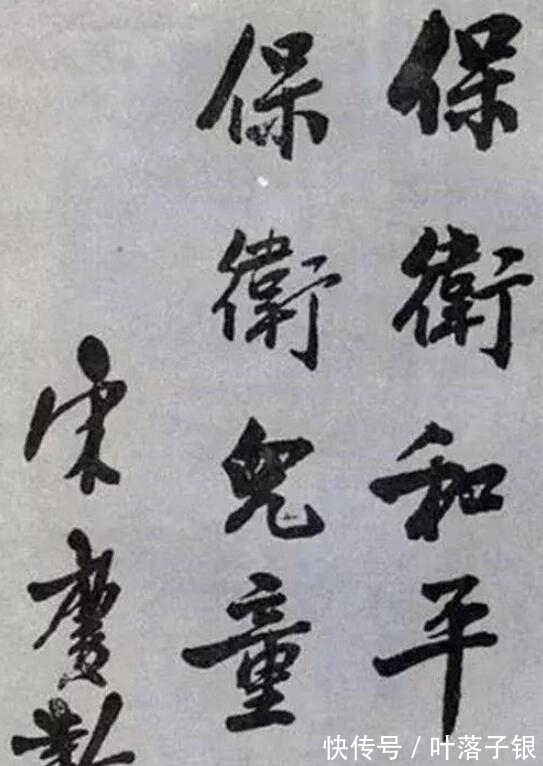 保衛和平
保衛兒童
宋慶齡
快传号/叶落子银